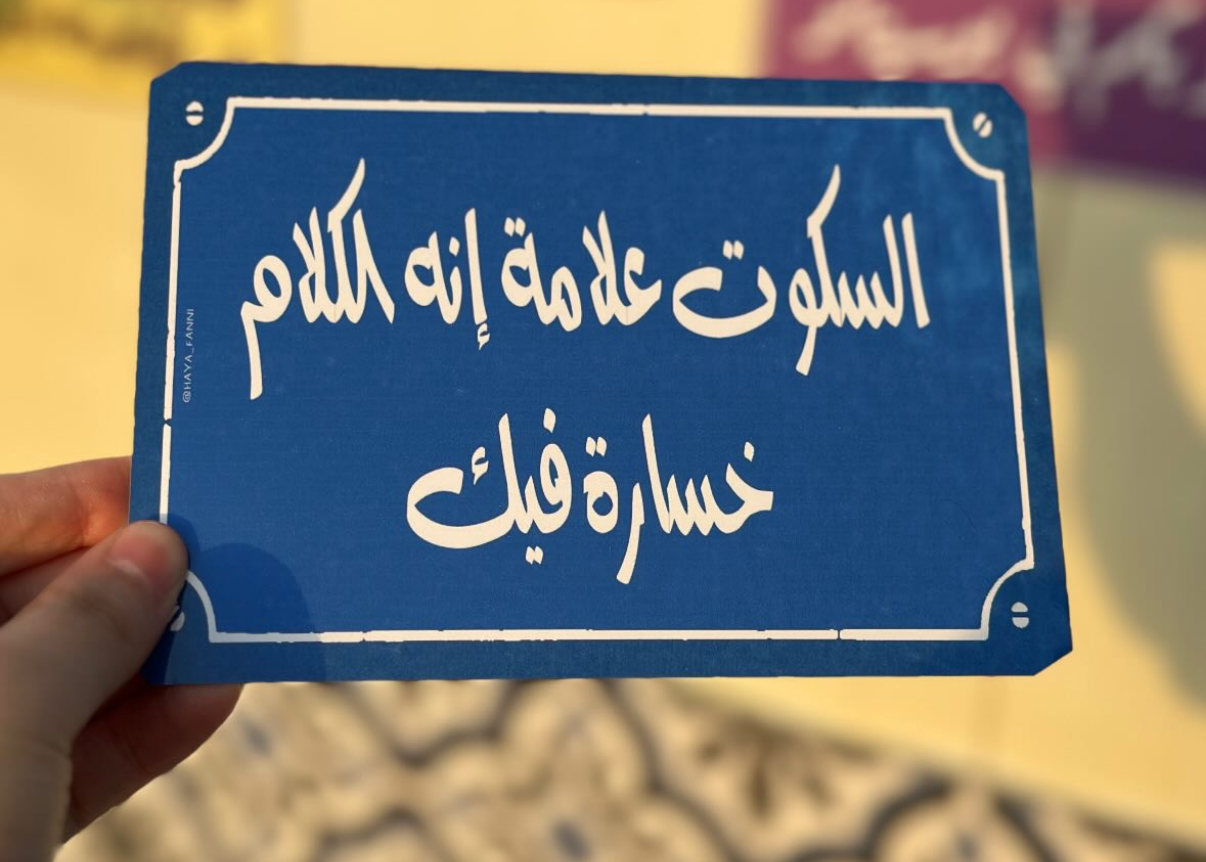 السكوت علامة إنه الكلام
خسارة فيك
@HAYA_FANNI